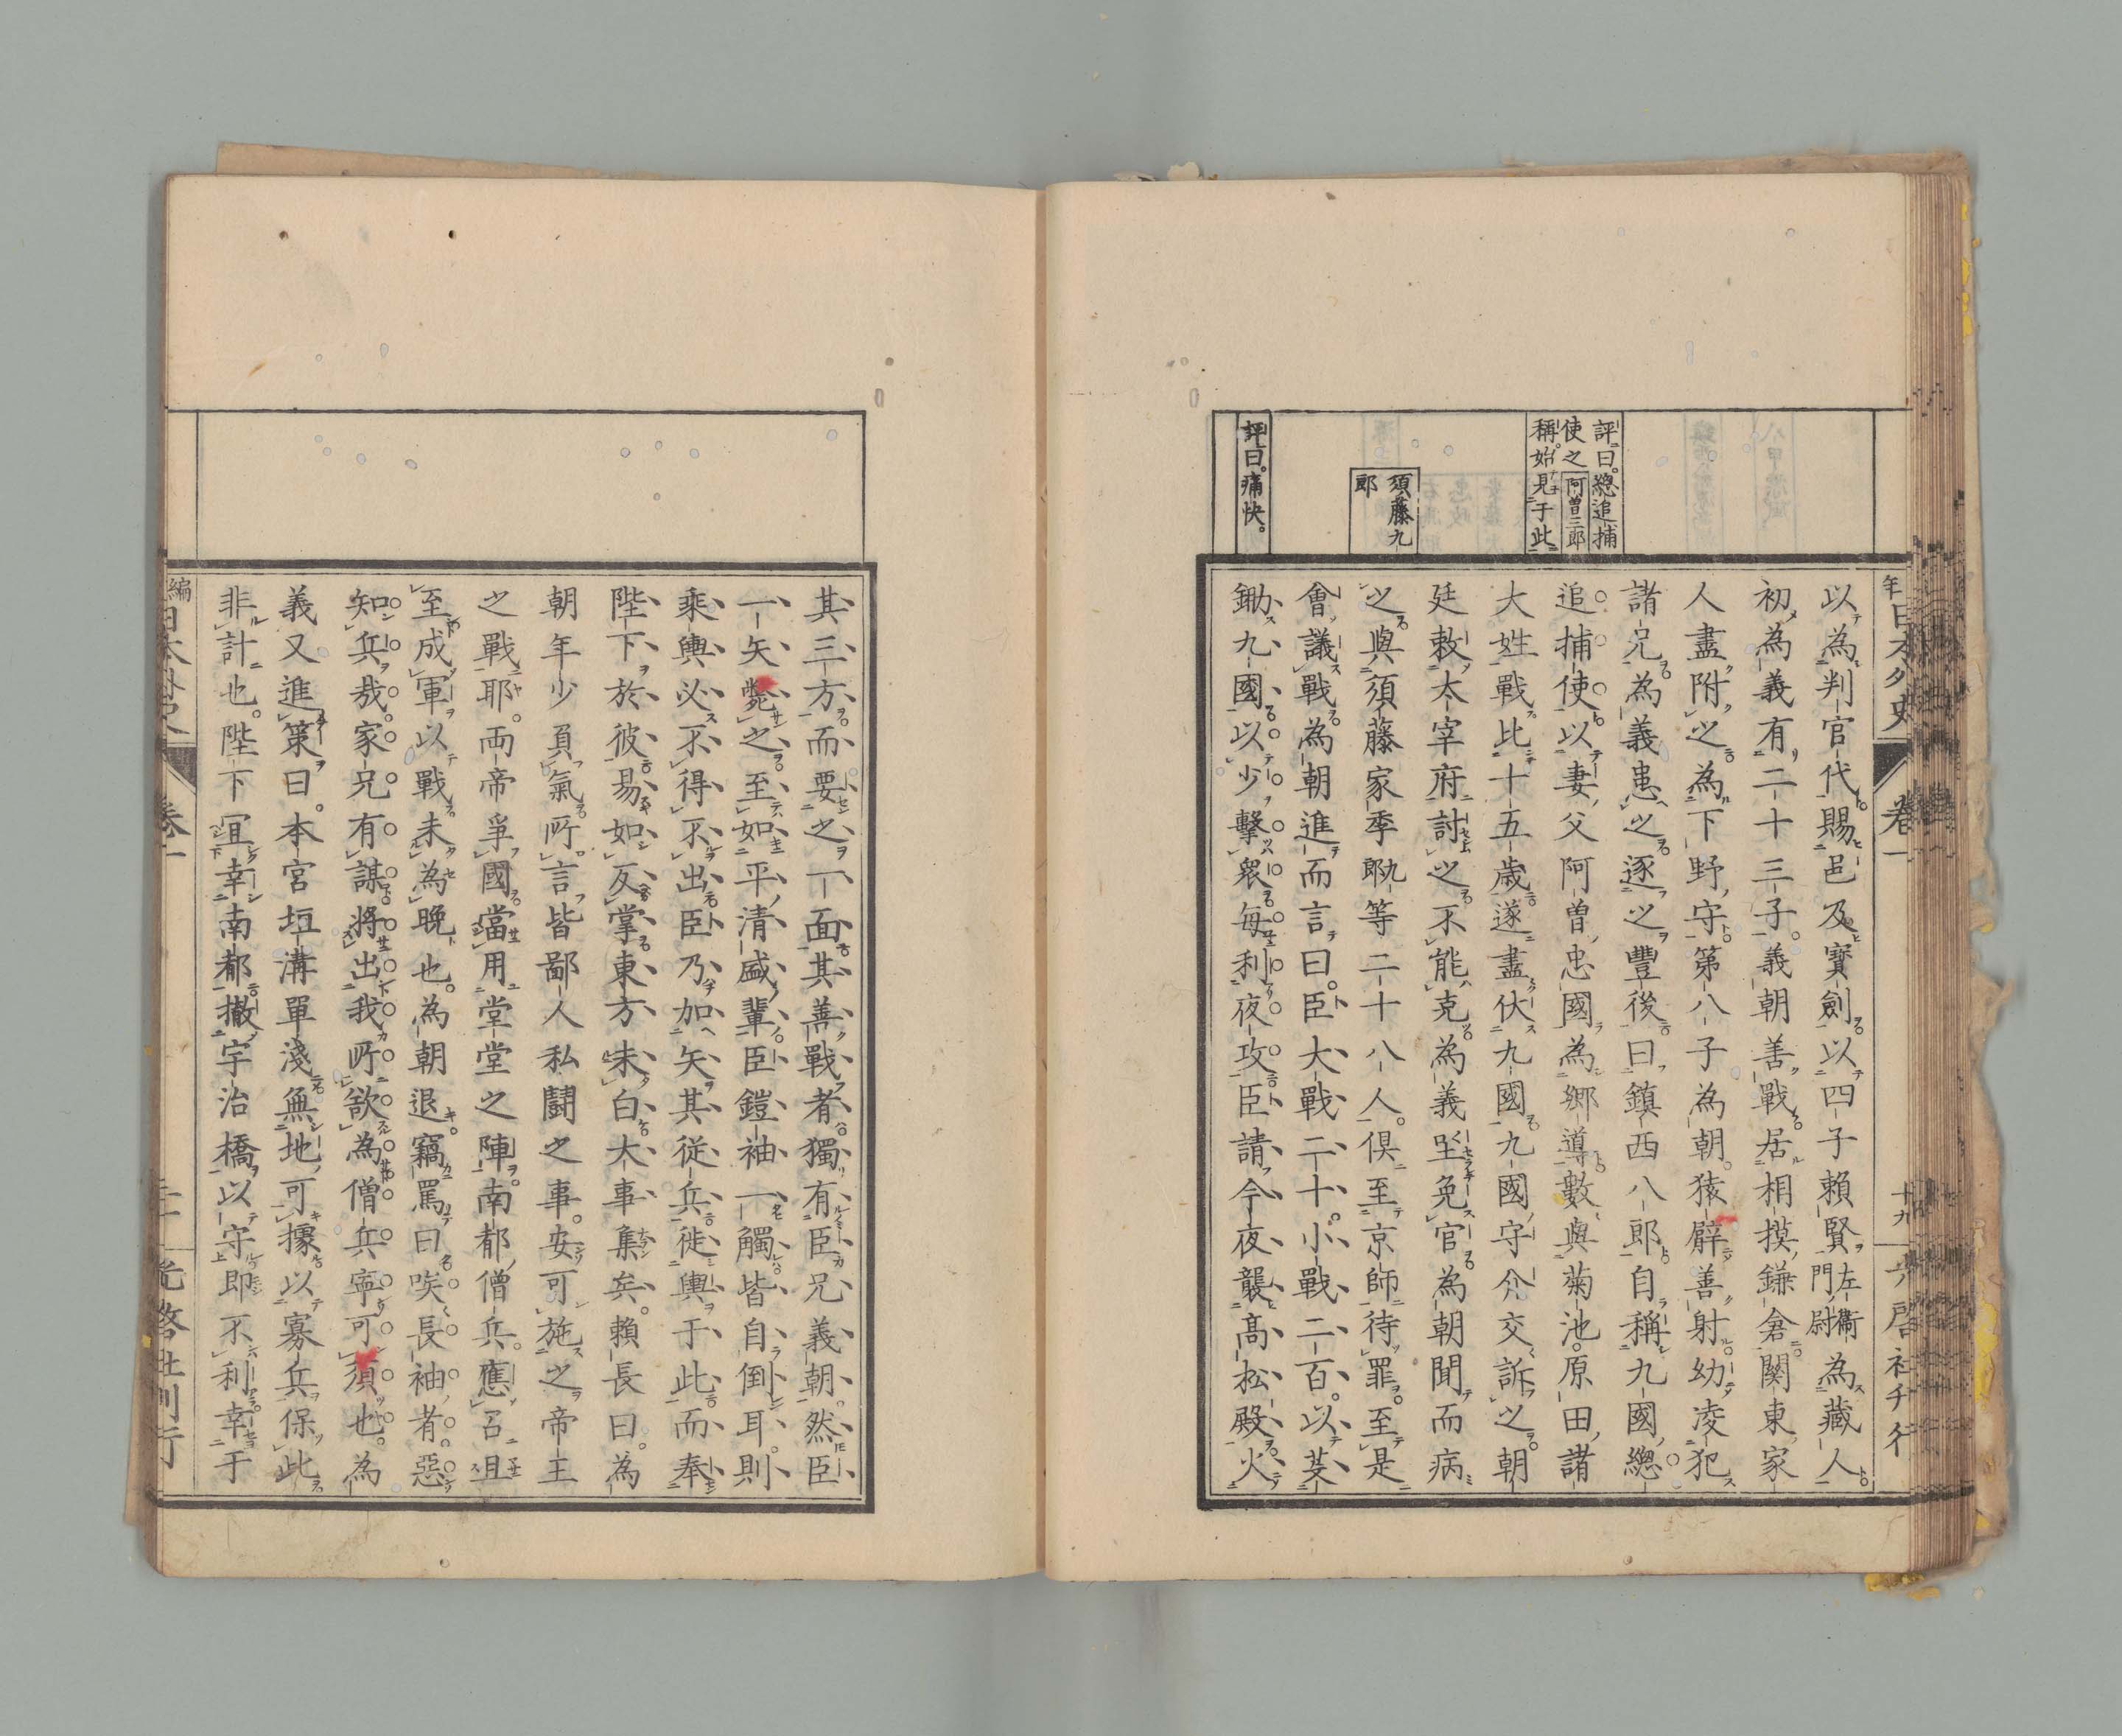 年日本外史　卷一　十九　光啓社刊行
評曰。總追捕
使之
阿曾三郎
稱。始見于此
須藤九
郎
評曰。痛快。
以爲判官代賜邑及寶劍以四子賴賢左衞門尉為藏人
初為義有二十三子。義朝善戰居相摸鎌倉關東家
人盡附之為下野守第八子為朝猿臂善射幼凌犯
諸兄為義患之逐之豐後曰鎮西八郎自稱九國總
追捕使以妻父阿曾忠國為鄉導數與菊池原田諸
大姓戰比十五歲遂盡伏九國九國守介交訴之朝
廷敕太宰府討之不能克為義坐免官為朝聞而病
之與須藤家季等二十八人。俱至京師待罪。至是
會議戰為朝進而言曰。臣大戰二十。小戰二百。以芟
鋤九國以少擊眾每利夜攻臣請今夜襲高松殿火
其三方而要之一面其善戰者獨有臣兄義朝。然臣
一矢斃之至如平清盛輩臣鎧袖一觸皆自倒耳。則
乘輿必不得不出臣乃加矢其從兵徙輿于此而奉
陛下於彼易如反掌東方未白大事集矣。賴長曰。為
朝年少負氣所言皆鄙人私鬪之事。安可施之帝王
之戰耶。兩帝爭國當用堂堂之陣南都僧兵應召且
至成軍以戰未為晚也。為朝退竊罵曰唉長袖者惡
知兵哉。家兄有謀將出我所欲為僧兵寧可須也。為
義又進策曰。本宮垣溝單淺無地可據以寡兵保此
非計也。陛下冝幸南都撤宇治橋以守即不利幸于
編日本外史　卷一　光啓社刊行